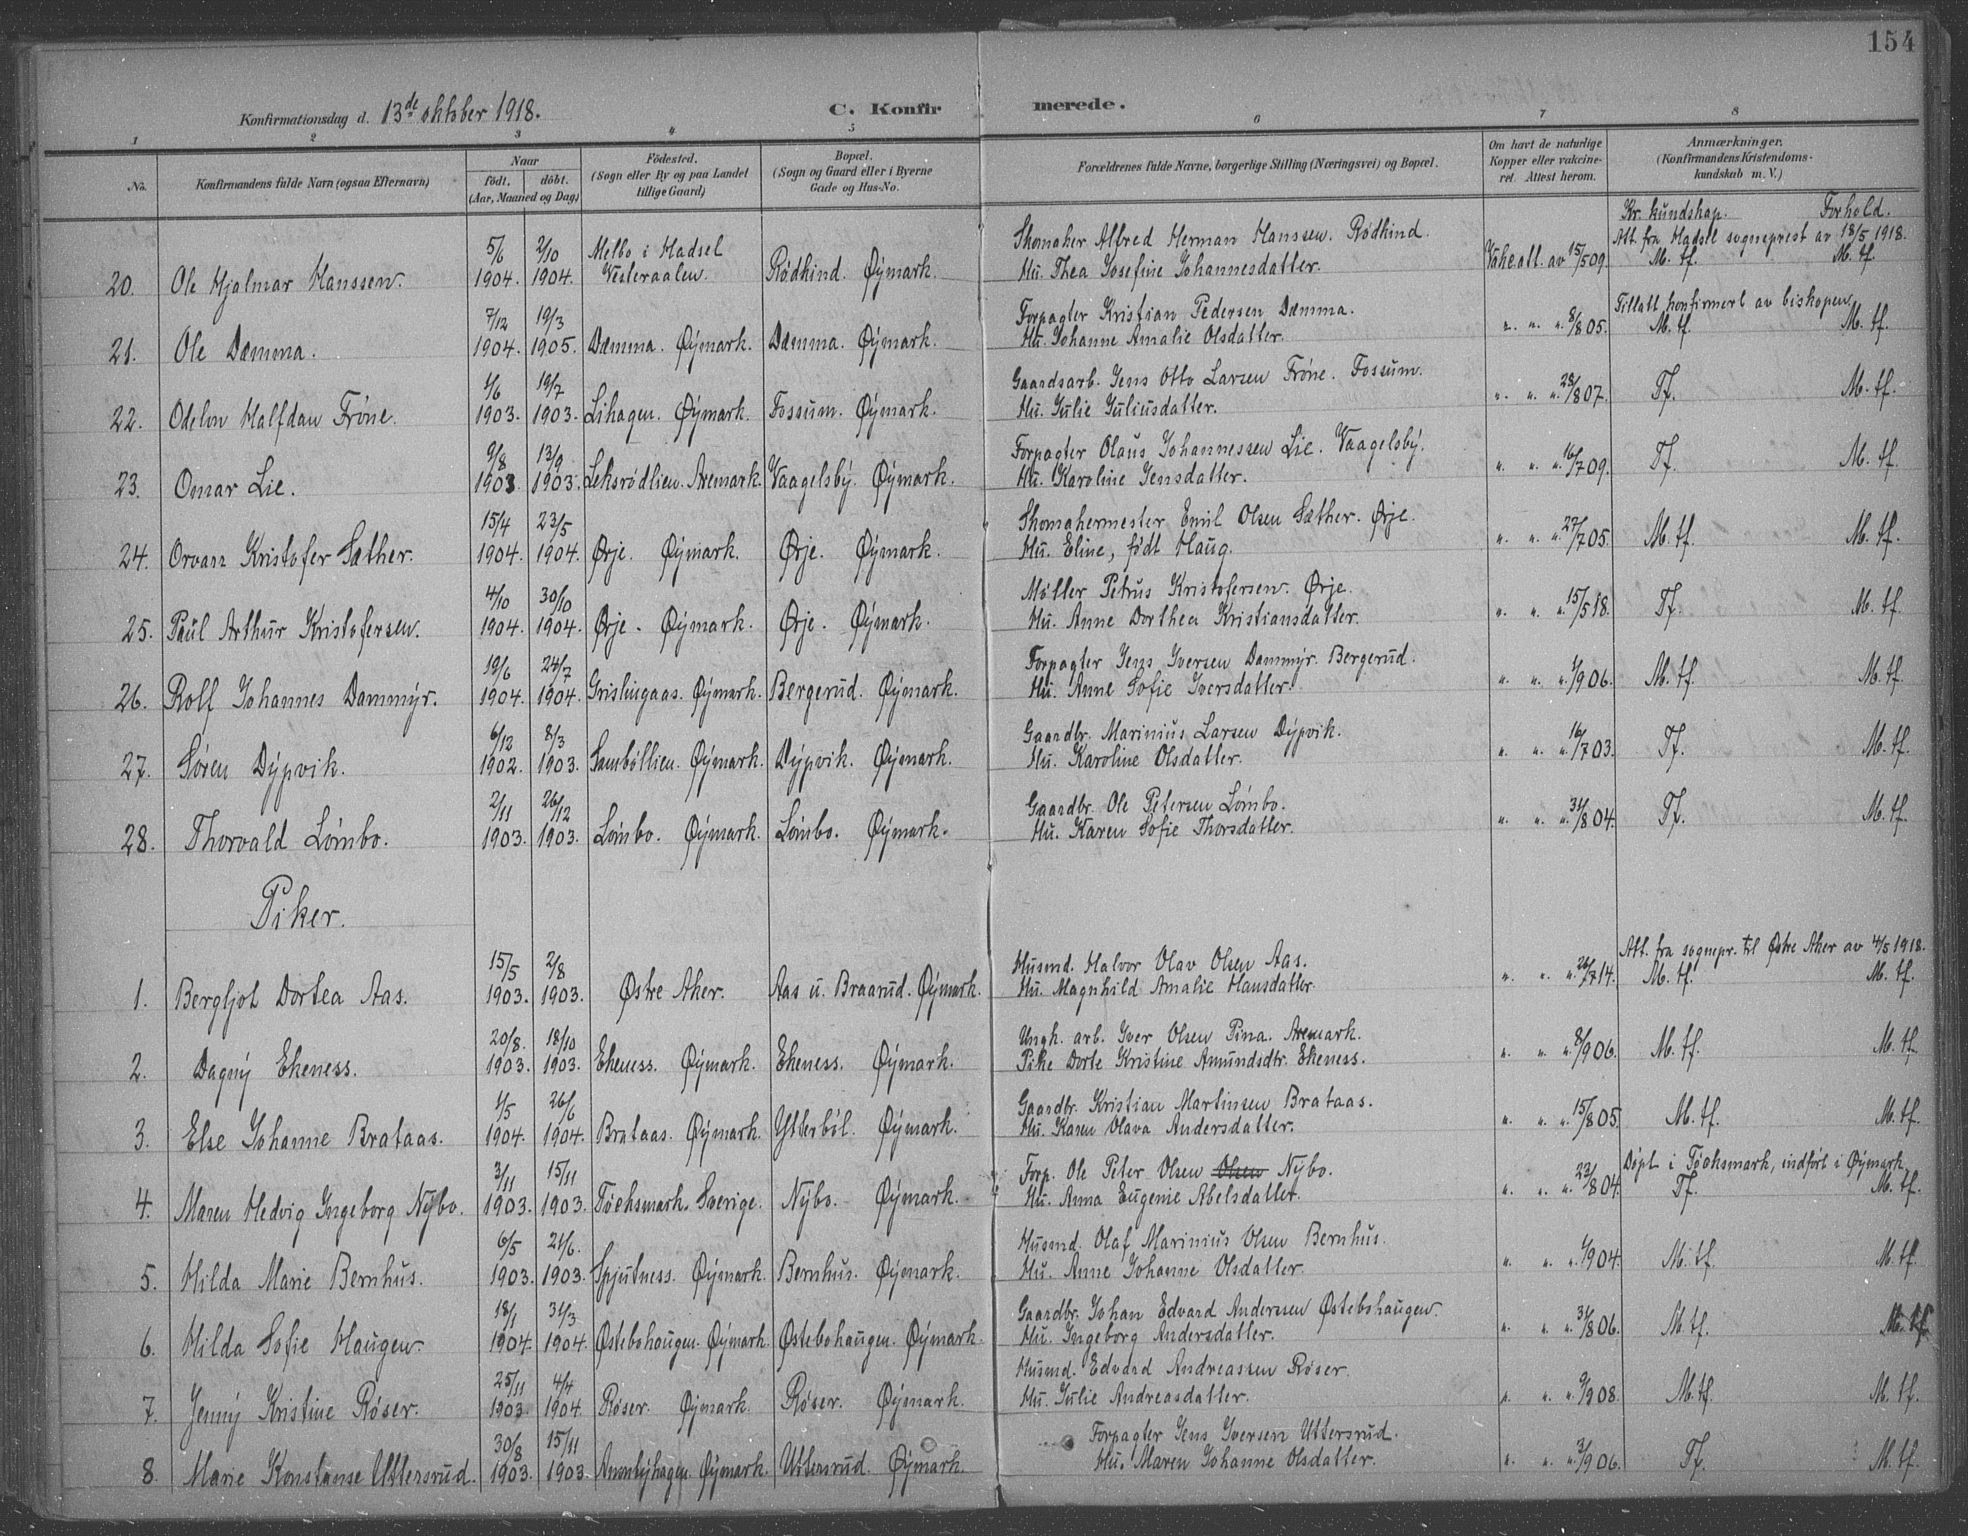 154
Konfirmationsdag d. 13de oktober 1918. C. Konfirmerede.
1 2 3 4 5 6 7 8
No. Konfirmandens fulde Navn (ogsaa Efternavn) Naar født, døbt. (Aar, Maaned og Dag) Fødested. (Sogn eller By og paa Landet tillige Gaard) Bopæl. (Sogn og Gaard eller i Byerne Gade og Hus-No. Forældrenes fulde Navne, borgerlige Stilling (Næringsvei) og Bopæl. Om havt de naturlige Kopper eller vakcineret. Attest herom. Anmærkninger. (Konfirmandens Kristendomskundskab m. V.)
Kr. kundskap. Forhold.
5/6 2/10 Melbo i Hadsel Skomaker Alfred Herman Hanssen. Rødkind. Att. fra Hadsel sogneprest av 18/5 1918.
20. Ole Hjalmar Hanssen. 1904. 1904. Vesteraalen. Rødkind. Øymark. Hu. Thea Josefine Johannesdatter. Vakc att. av 15/5 09. M. tf. M. tf.
7/12 19/3 Forpagter Kristian Pedersen Dæmma. Tillatt konfirmert av biskopen.
21. Ole Dæmma. 1904. 1905. Dæmma. Øymark. Dæmma. Øymark. Hu. Johanne Amalie Olsdatter. " " " 8/8 05. M. tf. M. tf.
1/6 19/7 Gaardsarb. Jens Otto Larsen Frøne. Fossum.
22. Odelon Halfdan Frøne. 1903. 1903. Lihagen. Øymark. Fossum. Øymark. Hu. Julie Juliusdatter. " " " 28/8 07. Tf. M. tf.
9/8 13/9 Forpagter Olaus Johannessen Lie. Vaagelsby.
23. Omar Lie. 1903 1903. Leksrødlien. Aremark. Vaagelsby. Øymark. Hu. Karoline Jensdatter. " " " 16/7 09. Tf. M. tf.
15/4 23/5 Skomakermester Emil Olsen Sæther. Ørje.
24. Orvan Kristofer Sæther. 1904. 1904. Ørje. Øymark. Ørje. Øymark. Hu. Eline, født Haug. " " " 27/7 05. M. tf. M. tf.
4/10 30/10 Møller Petrus Kristofersen. Ørje.
25. Paul Arthur Kristofersen. 1904. 1904. Ørje. Øymark. Ørje. Øymark. Hu. Anne Dorthea Kristiansdatter. " " " 15/5 18. Tf. M. tf.
19/6 24/7 Forpagter Jens Iversen Dammyr. Bergerud.
26. Rolf Johannes Dammyr. 1904. 1904. Grislingaas. Øymark. Bergerud. Øymark. Hu. Anne Sofie Iversdatter. " " " 1/9 06. M. tf. M. tf.
6/12 8/3 Gaardbr. Marinius Larsen Dypvik.
27. Søren Dypvik. 1902. 1903. Sambøllien. Øymark. Dypvik. Øymark. Hu. Karoline Olsdatter. " " " 16/7 03. Tf. M. tf.
2/11 26/12 Gaardbr. Ole Petersen Lømbo.
28. Thorvald Lømbo. 1903. 1903. Lømbo. Øymark. Lømbo. Øymark. Hu. Karen Sofie Thorsdatter. " " " 31/8 04. Tf. M. tf.
Piker.
15/5 2/8 Husmd. Halvor Olav Olsen Aas. Att. fra sognepr. til Østre Aker av 4/5 1918.
1. Bergljot Dortea Aas. 1903. 1903. Østre Aker. Aas u. Braarud. Øymark. Hu. Magnhild Amalie Hansdatter. " " " 26/7 14. M. tf. M. tf.
20/8. 18/10 Ungk. arb. Iver Olsen Pina. Aremark.
2. Dagny Ekeness. 1903. 1903. Ekeness. Øymark. Ekeness. Øymark. Pike Dorte Kristine Amundsdtr. Ekeness. " " " 8/9 06. M. tf. M. tf.
1/5 26/6 Gaardbr. Kristian Martinsen Brataas.
3. Else Johanne Brataas. 1904. 1904. Brataas. Øymark. Ytterbøl. Øymark. Hu. Karen Olava Andersdatter. " " " 15/8 05. M. tf. M. tf.
3/11 15/11 Forp. Ole Peter Olsen Olsen Nybo. Døpt i Tøcksmark, indført i Øymark
4. Maren Hedvig Ingeborg Nybo. 1903. 1903. Tøcksmark. Sverige. Nybo. Øymark. Hu. Anna Eugenie Abelsdatter. " " " 22/8 04. Tf. M. tf.
6/5 21/6. Husmd. Olaf Marinius Olsen Bernhus.
5. Hilda Marie Bernhus. 1903. 1903. Spjutness. Øymark. Bernhus. Øymark. Hu. Anne Johanne Olsdatter. " " " 1/9 04. M. tf. M. tf.
18/1 31/3 Gaardbr. Johan Edvard Anderssen Østebohaugen.
6. Hilda Sofie Haugen. 1904. 1904. Østebohaugen. Øymark. Østebohaugen. Øymark. Hu. Ingeborg Andersdatter. " " " 31/8 06. M. tf. M. tf.
25/11 4/4 Husmd. Edvard Andreassen Røser.
7. Jenny Kristine Røser. 1903. 1904. Røser. Øymark. Røser. Øymark. Hu. Julie Andreasdatter. " " " 9/9 08. M. tf. M. tf.
30/8 15/11 Forpagter Jens Iversen Uttersrud.
8. Marie Konstanse Uttersrud. 1903. 1903. Øymark. Uttersrud. Øymark. Hu. Maren Johanne Olsdatter. " " " 3/9 06. Tf. M. tf.